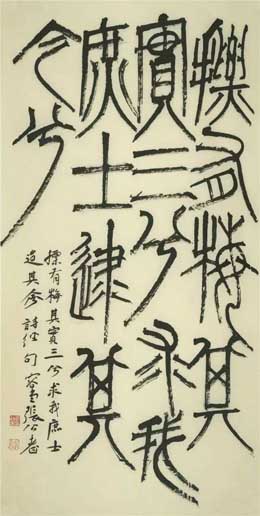 摽有梅其
實三兮求我
庶士逮其
今兮
摽有梅其實三兮求我庶士
迨其今 詩經句 張公者